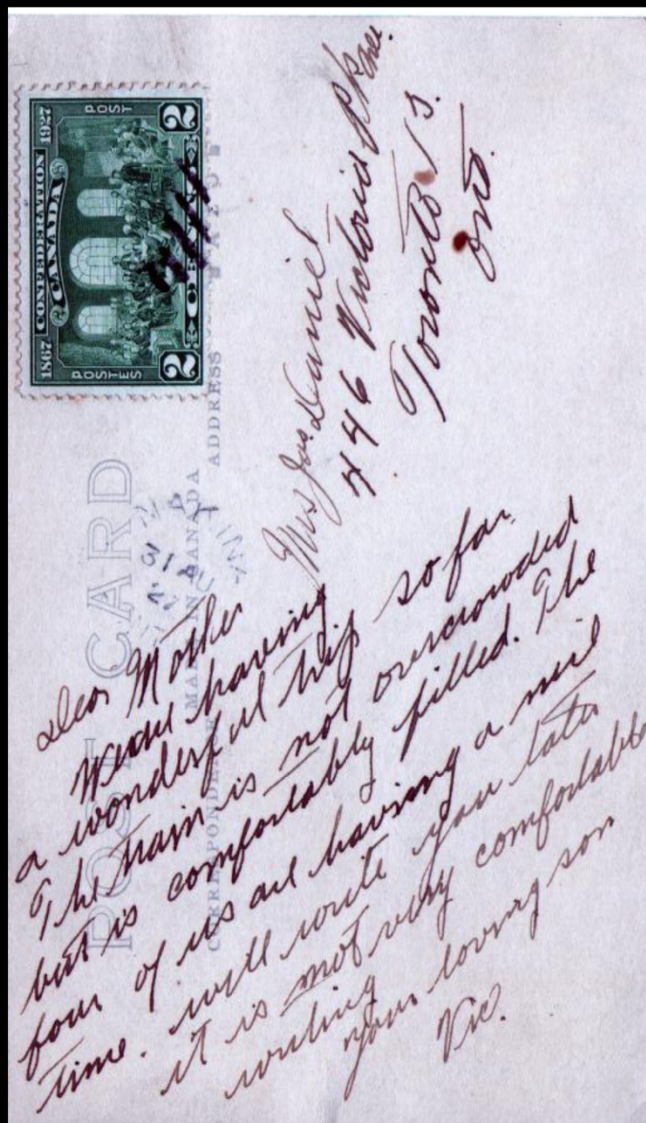 POST CARD
MADE IN CANADA
CORRESPONDENCE
ADDRESS
1867 CONFEDERATION 1927
CANADA
POSTES
POST
2 CENTS 2
Mrs Jas Daniel
446 Victoria Pk Ave.
Toronto 13.
Ont.
Dear Mother
We are having
a wonderful trip so far.
The train is not overcrowded
but is comfortably filled. The
four of us are having a nice
time. will write you later
it is not very comfortable
writing
your loving son
Vic.